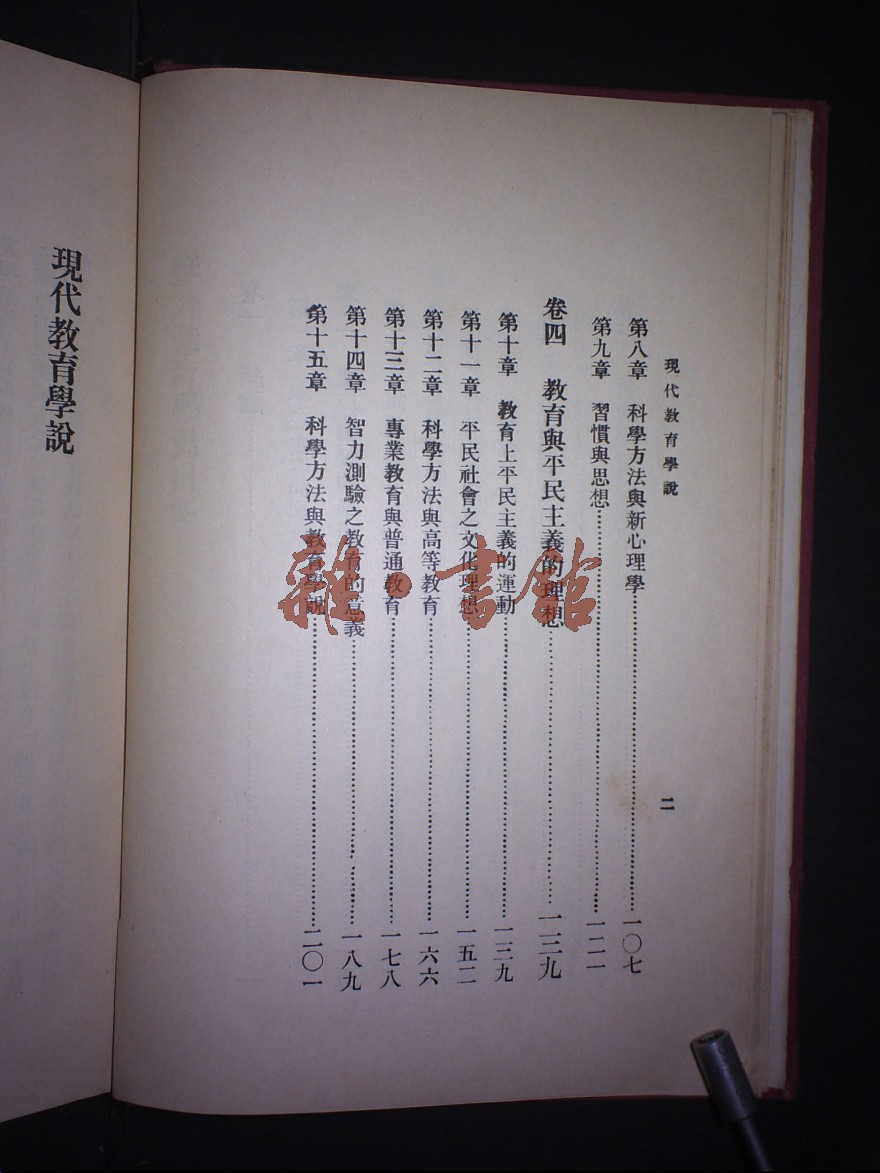 現代教育學說
二
第八章 科學方法與新心理學……一〇七
第九章 習慣與思想……一二一
卷四 教育與平民主義的理想……一三九
第十章 教育上平民主義的運動……一三九
第十一章 平民社會之文化理想……一五二
第十二章 科學方法與高等教育……一六六
第十三章 專業教育與普通教育……一七八
第十四章 智力測驗之教育的意義……一八九
第十五章 科學方法與教育學說……二〇一
現代教育學說
雜·書館